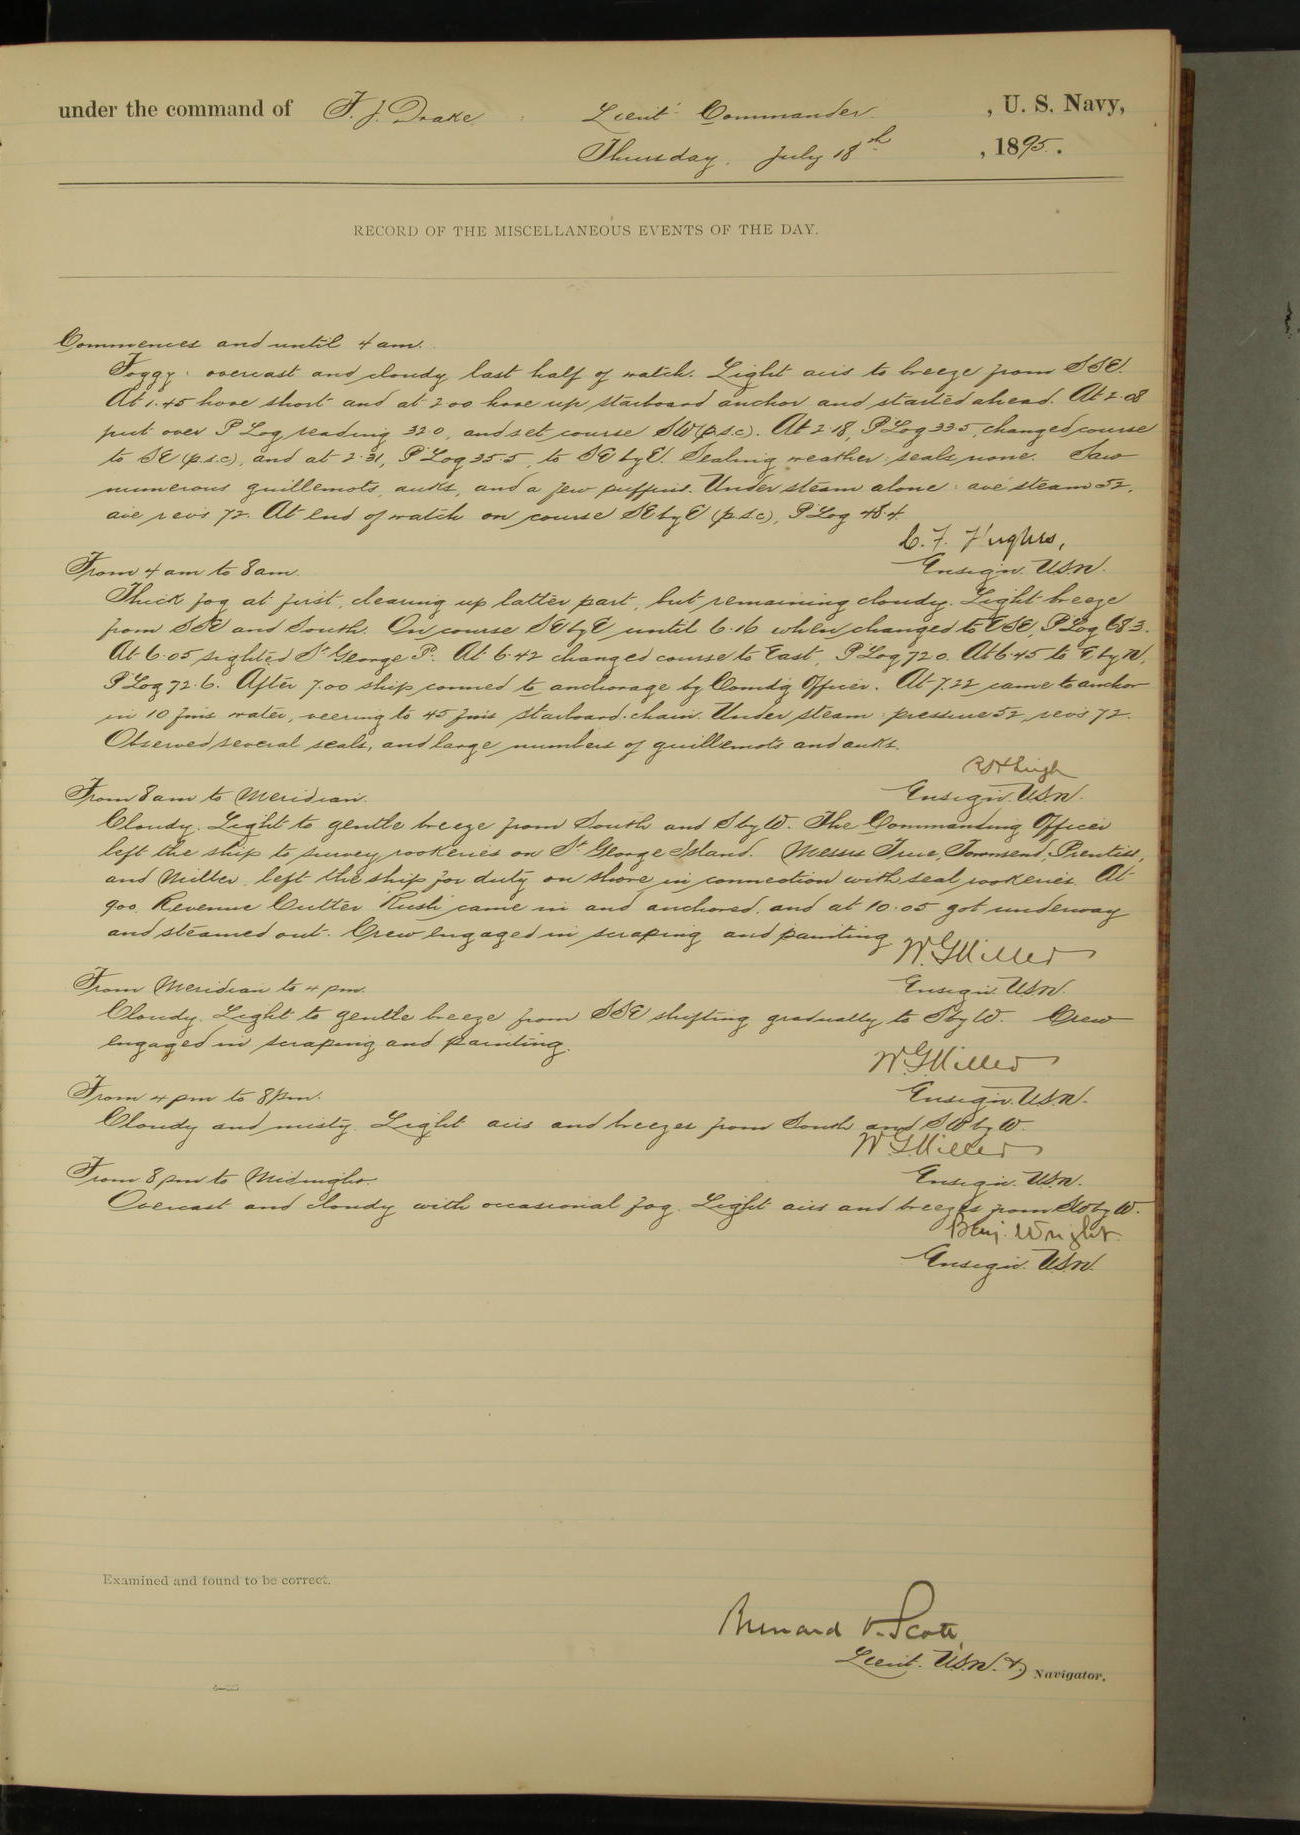 under the command of F. J. Drake, Lieut. Commander, U. S. Navy,
Thursday, July 18th, 1895.
RECORD OF THE MISCELLANEOUS EVENTS OF THE DAY.
Commences and until 4 am.
Foggy: overcast and cloudy last half of watch. Light airs to breeze from SSE.
At 1.45 hove short and at 2.00 hove up starboard anchor and started ahead. At 2.08
put over P Log reading 32.0, and set course SW (p.s.c). At 2.18, P Log 33.5, changed course
to SE (p.s.c), and at 2.31, P Log 35.5, to SE by E. Sealing weather: seals none. Saw
numerous guillemots, auks, and a few puffins. Under steam alone: ave steam 52,
ave revs 72. At end of watch on course SE by E (p.s.c), P Log 48.4.
C. F. Hughes,
Ensign. USN.
From 4 am to 8 am.
Thick fog at first, clearing up latter part, but remaining cloudy. Light breeze
from SSE and South. On course SE by E until 6.16 when changed to ESE, P Log 68.3.
At 6.05 sighted St George P. At 6.42 changed course to East, P Log 72.0. At 6.45 to E by N,
P Log 72.6. After 7.00 ship conned to anchorage by Comdg Officer. At 7.22 came to anchor
in 10 fms water, veering to 45 fms starboard chain. Under steam: pressure 52, revs 72.
Observed several seals, and large numbers of guillemots and auks.
Ensign. USN.
From 8 am to Meridian.
Cloudy. Light to gentle breeze from South and S by W. The Commanding Officer
left the ship to survey rookeries on St George Island. Messrs True, Townsend, Prentiss,
and Miller left the ship for duty on shore in connection with seal rookeries. At
9.00 Revenue Cutter Rush came in and anchored, and at 10.05 got underway
and steamed out. Crew engaged in scraping and painting
W. G. Miller
Ensign. USN.
From Meridian to 4 pm.
Cloudy. Light to gentle breeze from SSE shifting gradually to S by W. Crew
engaged in scraping and painting.
W. G. Miller
Ensign. USN.
From 4 pm to 8 pm.
Cloudy and misty. Light airs and breezes from South and SW by W.
W. G. Miller
Ensign. USN.
From 8 pm to Midnight.
Overcast and cloudy with occasional fog. Light airs and breezes from SW by W.
Benj. Wright.
Ensign. USN.
Examined and found to be correct.
Bernard O. Scott,
Lieut. USN. & Navigator.